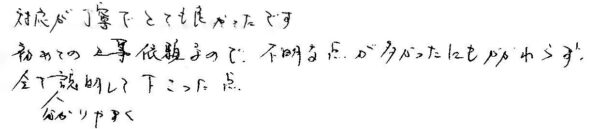 対応が丁寧でとても良かったです
初めての工事依頼なので、不明な点が多かったにもかかわらず、
全て説明して下さった点
分かりやすく